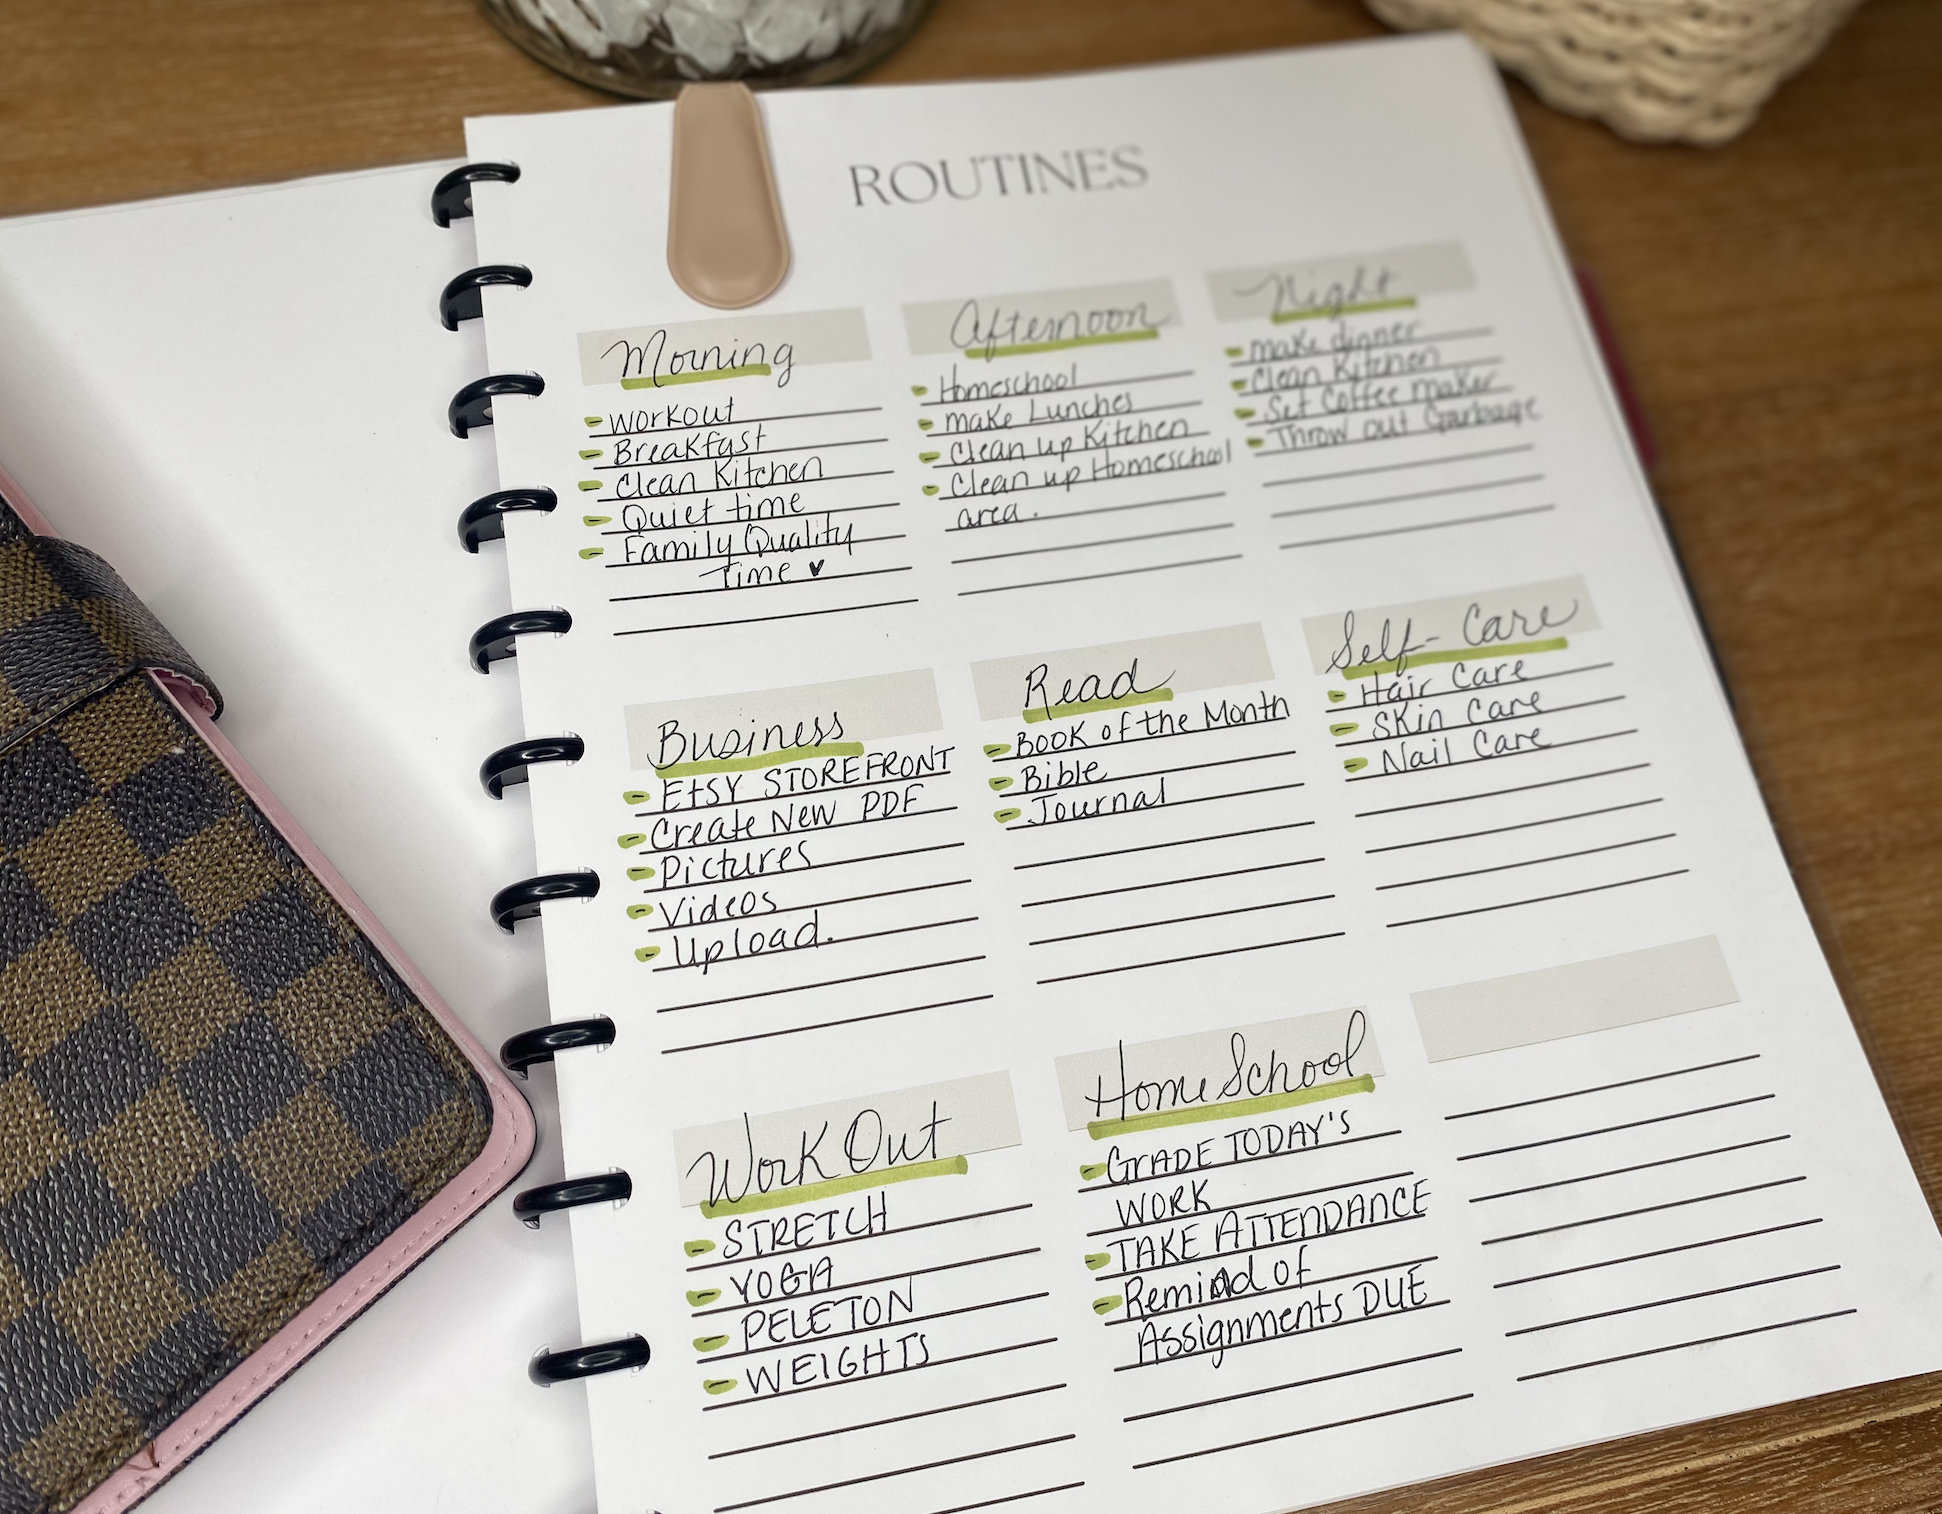 ROUTINES
Morning
- Workout
- Breakfast
- Clean Kitchen
- Quiet time
- Family Quality
Time ♥
Afternoon
- Homeschool
- make Lunches
- Clean up Kitchen
- Clean up Homeschool
area.
Night
- make dinner
- Clean Kitchen
- Set Coffee maker
- Throw out Garbage
Business
- EtSY STOREFRONT
- Create New PDF
- Pictures
- Videos
- Upload.
Read
- Book of the Month
- Bible
- Journal
Self-Care
- Hair Care
- Skin Care
- Nail Care
Work Out
- STRETCH
- YOGA
- PELETON
- WEIGHTS
HomeSchool
- GRADE TODAY'S
WORK
- TAKE ATTENDANCE
- Remind of
Assignments DUE